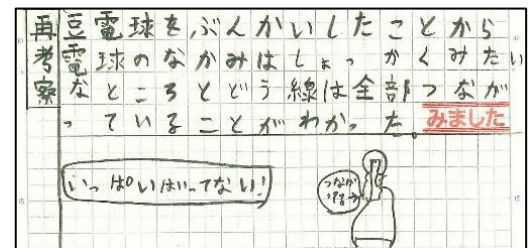 再考察
豆電球をぶんかいしたことから
電球のなかみはしょっかくみたい
なところとどう線は全部つなが
っていることがわかった。
みました
いっぱいはいってない!
つなが
ってる→